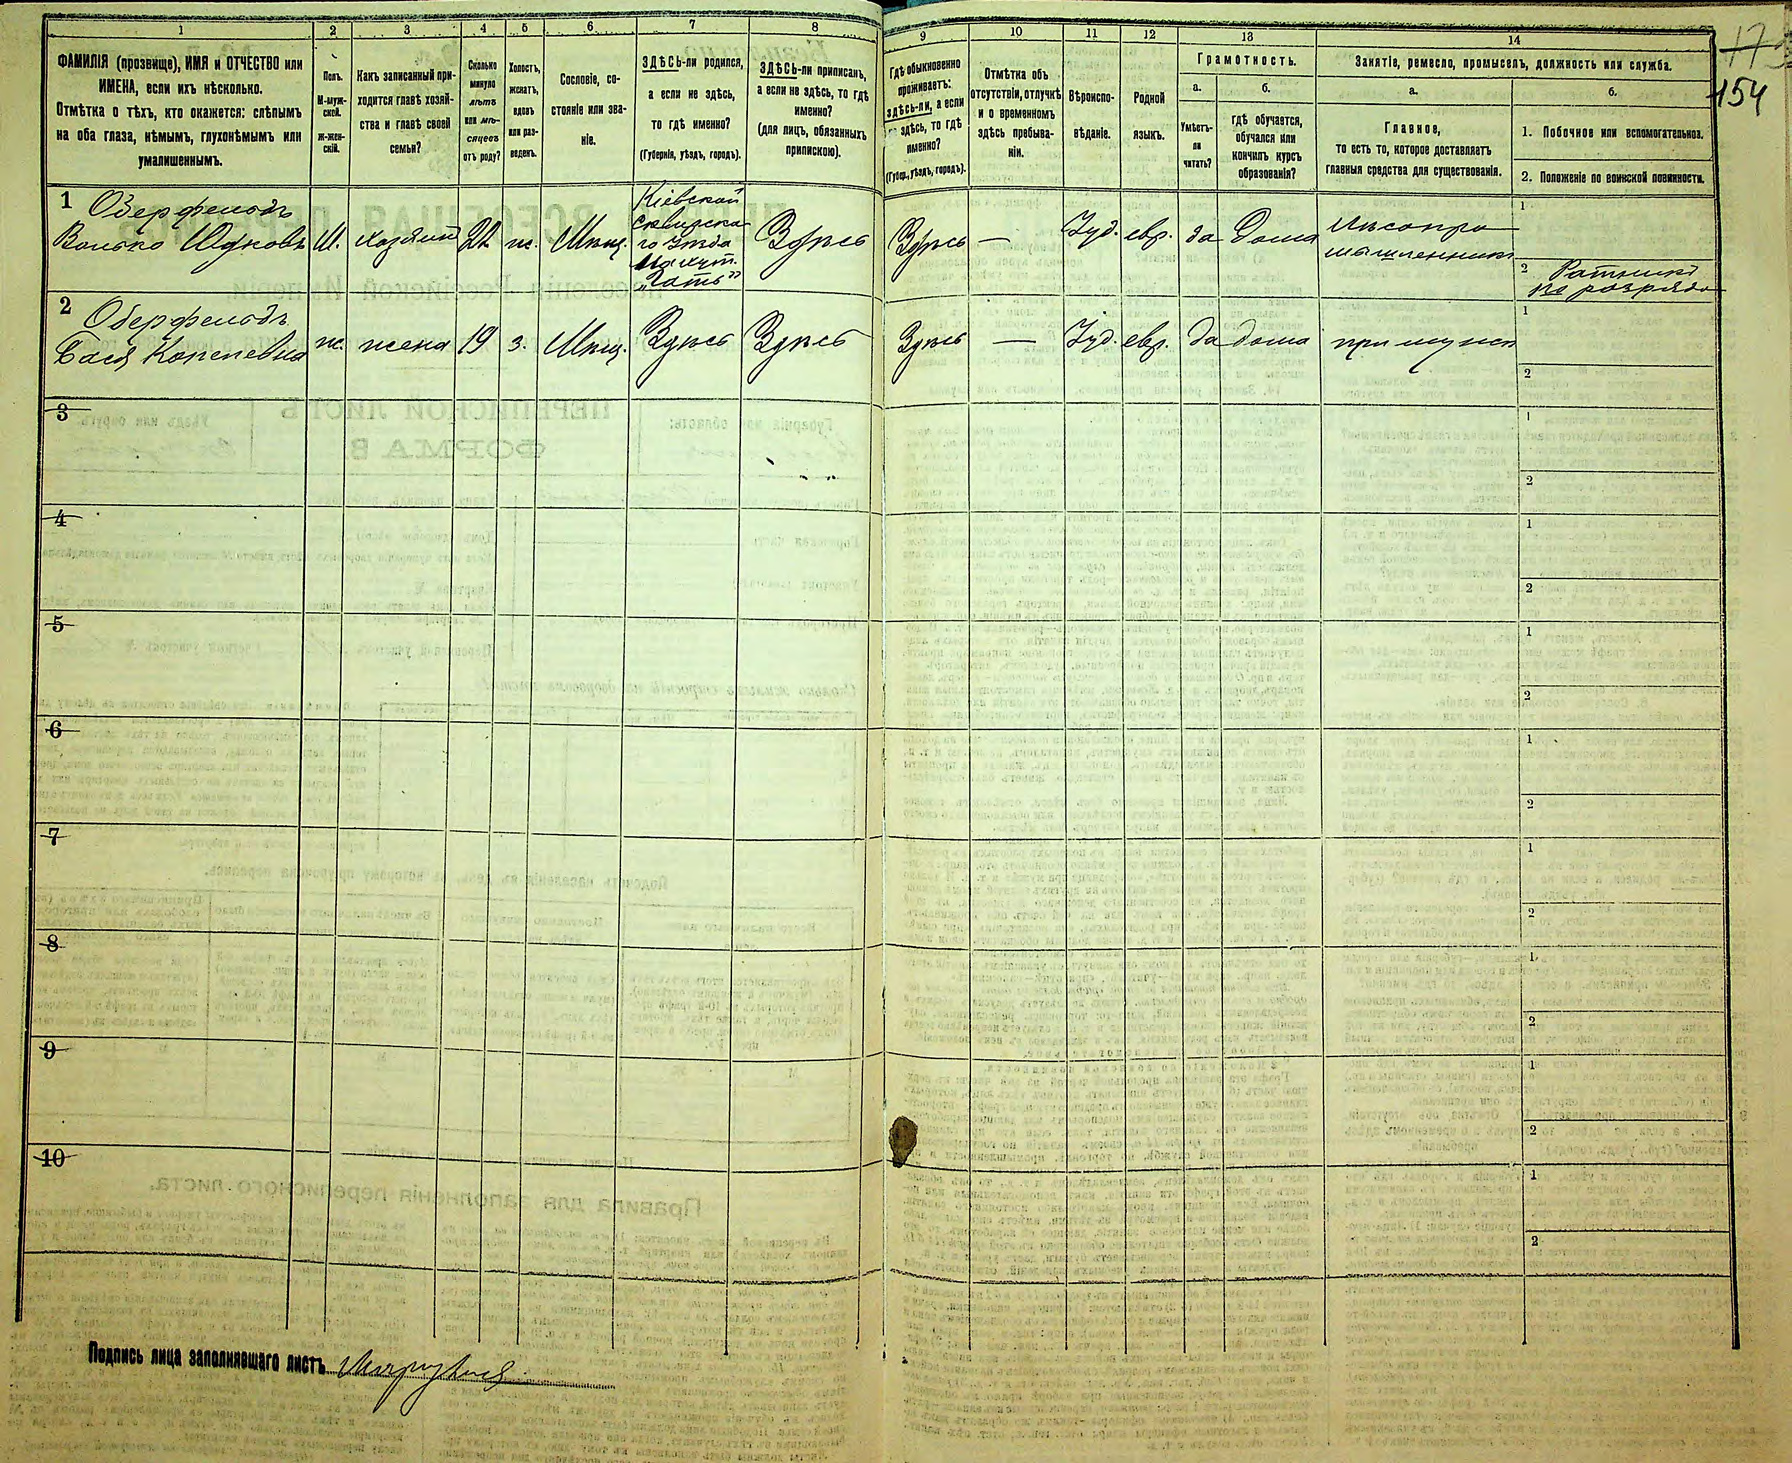 1 2 3 4 5 6 7 8
ФАМИЛІЯ (прозвище), ИМЯ и ОТЧЕСТВО или
ИМЕНА, если ихъ нѣсколько.
Отмѣтка о тѣхъ, кто окажется: слѣпымъ
на оба глаза, нѣмымъ, глухонѣмымъ или
умалишеннымъ.
Полъ.
М-муж-
ской.
ж-жен-
скій.
Какъ записанный при-
ходится главѣ хозяй-
ства и главѣ своей
семьи?
Сколько
минуло
лѣтъ
или мѣ-
сяцевъ
отъ роду?
Холостъ,
женатъ,
вдовъ
или раз-
веденъ.
Сословіе, со-
стояніе или зва-
ніе.
ЗДѢСЬ-ли родился,
а если не здѣсь,
то гдѣ именно?
(Губернія, уѣздъ, городъ).
ЗДѢСЬ-ли приписанъ,
а если не здѣсь, то гдѣ
именно?
(для лицъ, обязанныхъ
припискою).
9 10 11 12 13 14
Гдѣ обыкновенно
проживаетъ:
здѣсь-ли, а если
не здѣсь, то гдѣ
именно?
(Губер., уѣздъ, городъ).
Отмѣтка объ
отсутствіи, отлучкѣ
и о временномъ
здѣсь пребыва-
ніи.
Вѣроиспо-
вѣданіе.
Родной
языкъ.
Грамотность.
а.
Умѣетъ-
ли
читать?
б.
гдѣ обучается,
обучался или
кончилъ курсъ
образованія?
Занятіе, ремесло, промыселъ, должность или служба.
а.
Главное,
то есть то, которое доставляетъ
главныя средства для существованія.
б.
1. Побочное или вспомогательное.
2. Положеніе по воинской повинности.
154
1 Оберфельдъ
Волько Шуковъ М. хозяинъ 22 ж. Мѣщ. Кіевской
Сквирска-
го Уѣзда
Здѣсь Здѣсь — Іуд. евр. да Дома Лѣсопро-
мышленникъ
1
2 Ратникъ
2 Оберфельдъ
Бася Копелевна ж. жена 19 з. Мѣщ. Здѣсь Здѣсь Здѣсь — Іуд. евр. да дома при мужѣ
1
2
3 1 2
4 1 2
5 1 2
6 1 2
7 1 2
8 1 2
9 1 2
10 1 2
Подпись лица заполнявшаго листъ